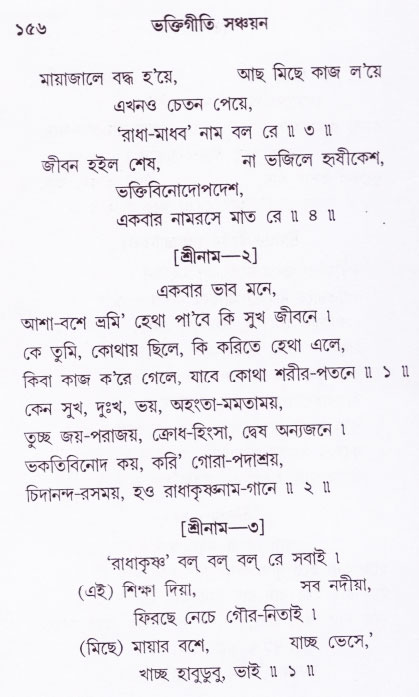 ১৫৬ ভক্তিগীতি সঞ্চয়ন
মায়াজালে বদ্ধ হ'য়ে, আছ মিছে কাজ ল'য়ে
এখনও চেতন পেয়ে,
‘রাধা-মাধব’ নাম বল রে ॥ ৩ ॥
জীবন হইল শেষ, না ভজিলে হৃষীকেশ,
ভক্তিবিনোদোপদেশ,
একবার নামরসে মাত রে ॥ ৪ ॥
[শ্রীনাম—২]
একবার ভাব মনে,
আশা-বশে ভ্রমি' হেথা পা'বে কি সুখ জীবনে ।
কে তুমি, কোথায় ছিলে, কি করিতে হেথা এলে,
কিবা কাজ ক'রে গেলে, যাবে কোথা শরীর-পতনে ॥ ১ ॥
কেন সুখ, দুঃখ, ভয়, অহংতা-মমতাময়,
তুচ্ছ জয়-পরাজয়, ক্রোধ-হিংসা, দ্বেষ অন্যজনে ।
ভকতিবিনোদ কয়, করি' গোরা-পদাশ্রয়,
চিদানন্দ-রসময়, হও রাধাকৃষ্ণনাম-গানে ॥ ২ ॥
[শ্রীনাম—৩]
‘রাধাকৃষ্ণ’ বল্ বল্ বল্ রে সবাই ।
(এই) শিক্ষা দিয়া, সব নদীয়া,
ফিরছে নেচে গৌর-নিতাই ।
(মিছে) মায়ার বশে, যাচ্ছ ভেসে,’
খাচ্ছ হাবুডুবু, ভাই ॥ ১ ॥